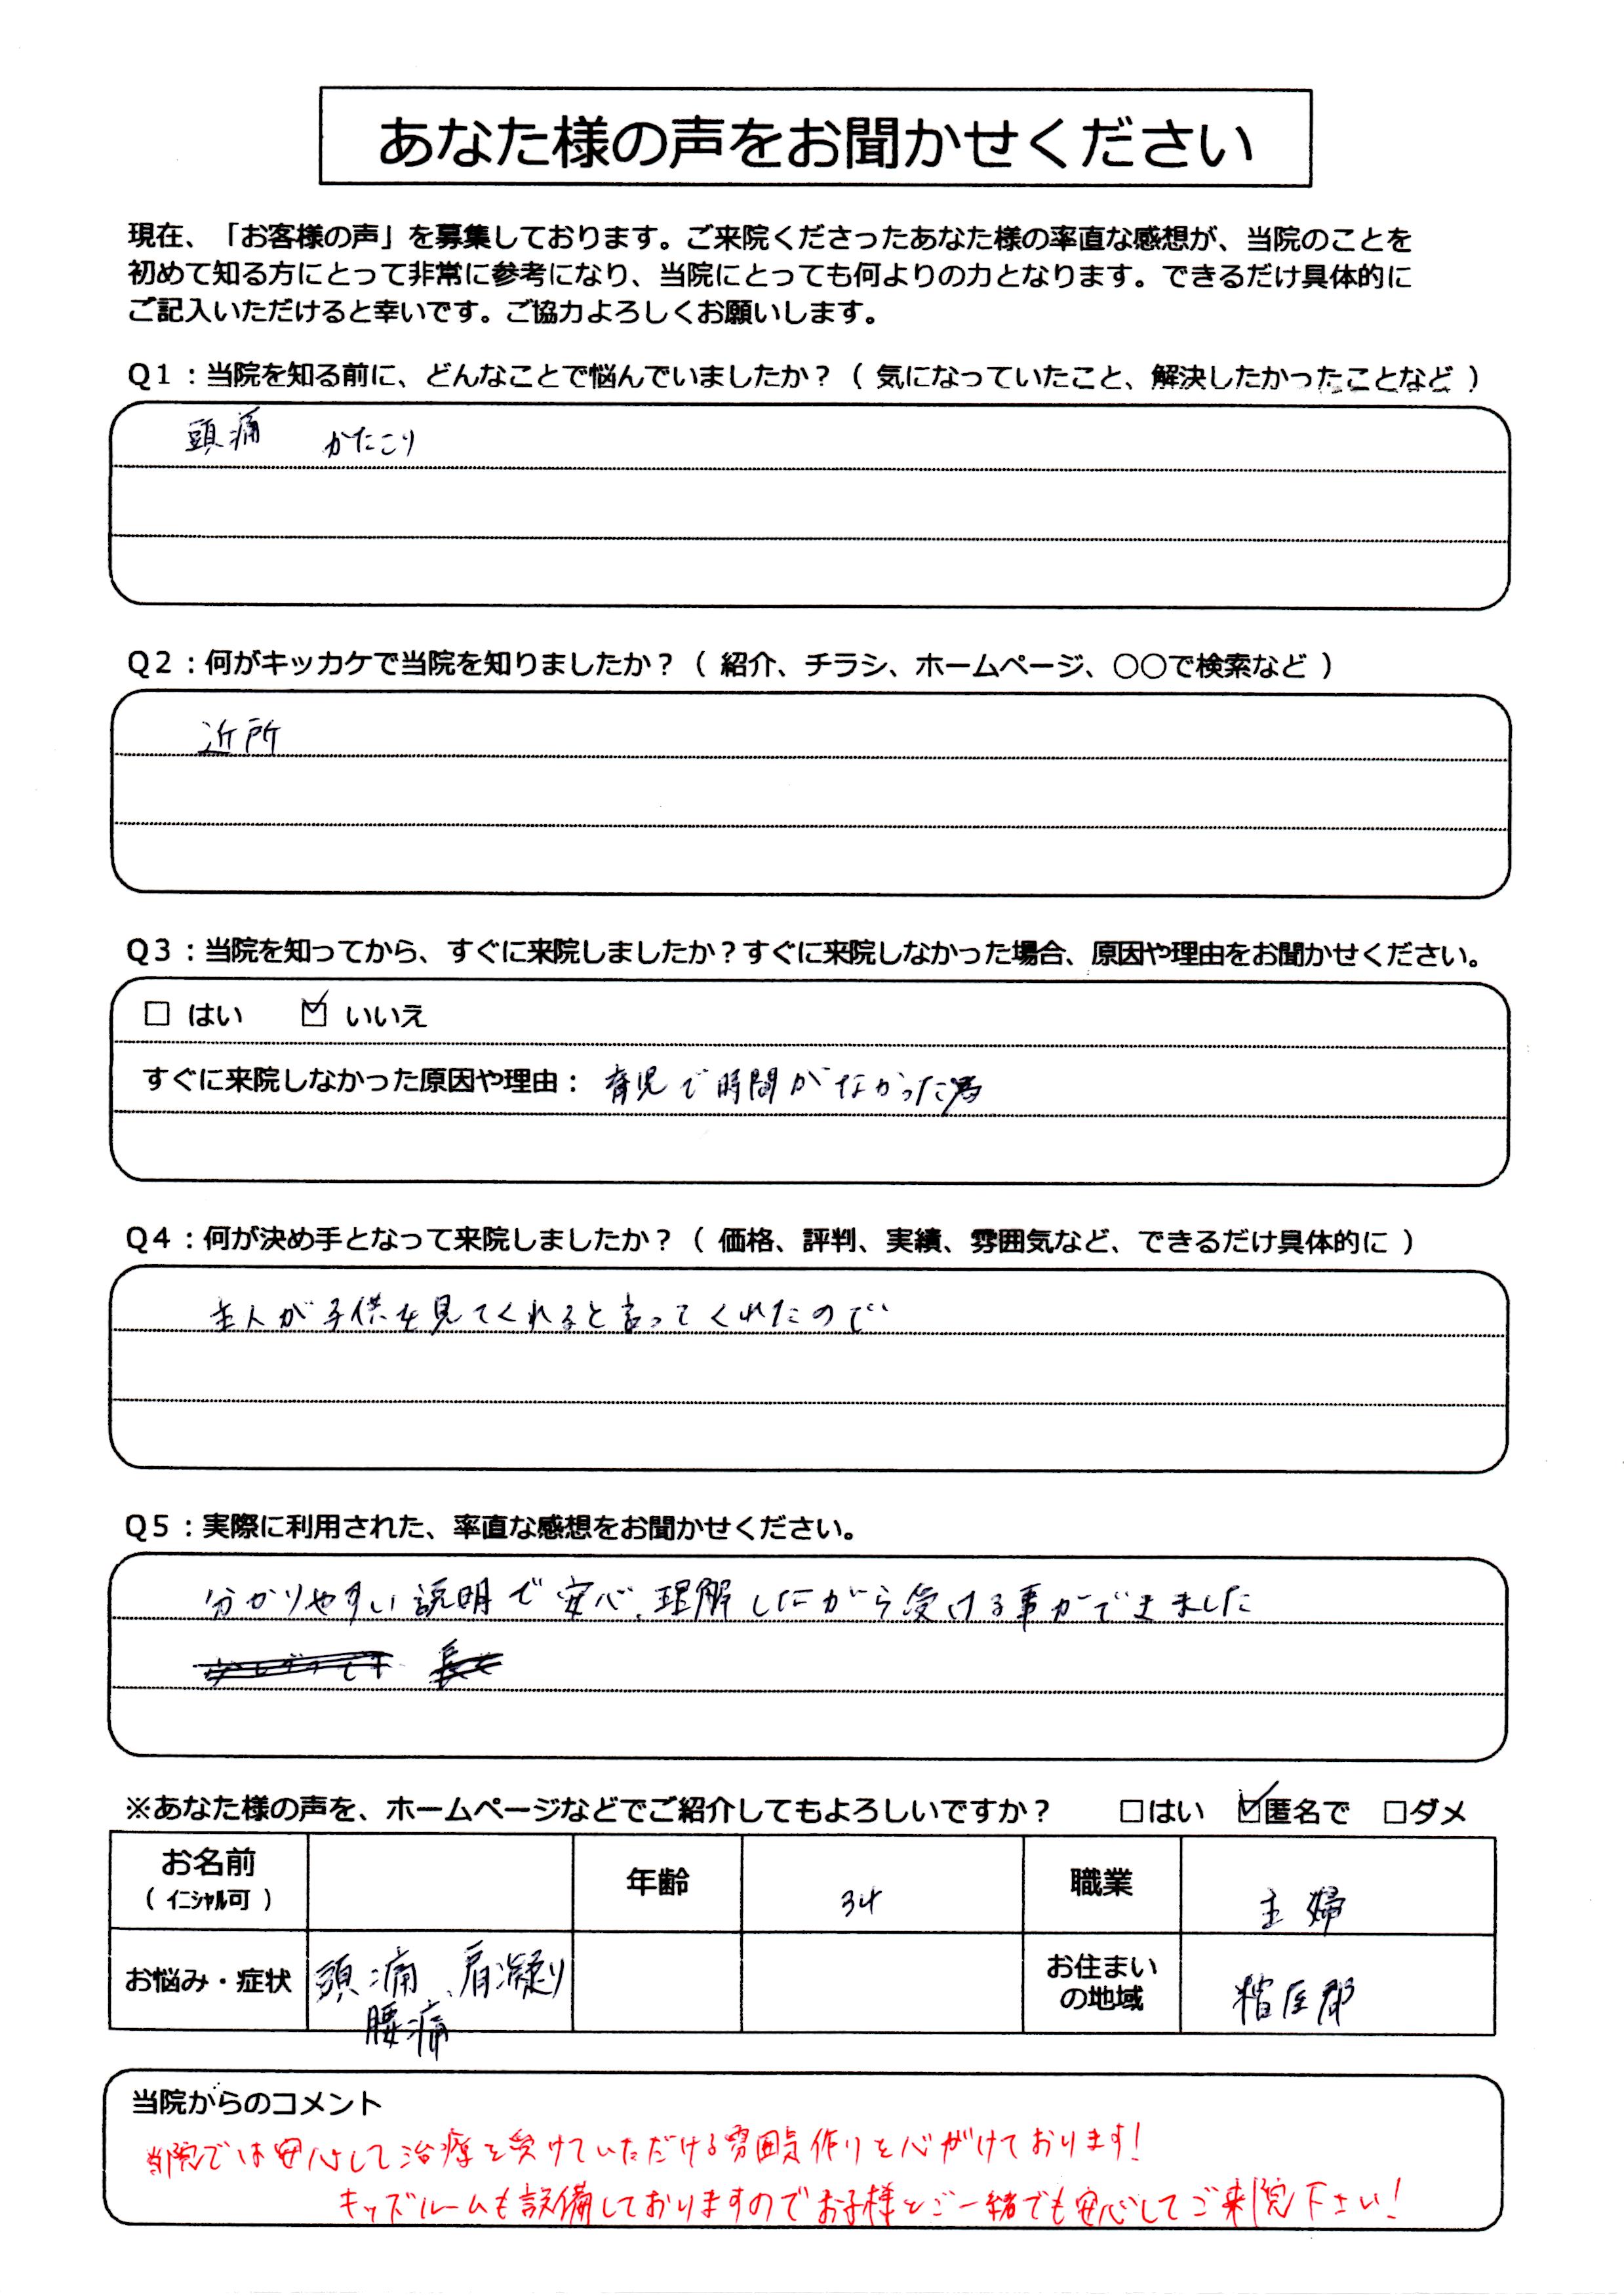 あなた様の声をお聞かせください
現在、「お客様の声」を募集しております。ご来院くださったあなた様の率直な感想が、当院のことを
初めて知る方にとって非常に参考になり、当院にとっても何よりの力となります。できるだけ具体的に
ご記入いただけると幸いです。ご協力よろしくお願いします。
Q1：当院を知る前に、どんなことで悩んでいましたか？（ 気になっていたこと、解決したかったことなど ）
頭痛 かたこり
Q2：何がキッカケで当院を知りましたか？（ 紹介、チラシ、ホームページ、○○で検索など ）
近所
Q3：当院を知ってから、すぐに来院しましたか？すぐに来院しなかった場合、原因や理由をお聞かせください。
□ はい ☑ いいえ
すぐに来院しなかった原因や理由： 育児で時間がなかった為
Q4：何が決め手となって来院しましたか？（ 価格、評判、実績、雰囲気など、できるだけ具体的に ）
主人が子供を見てくれると言ってくれたので
Q5：実際に利用された、率直な感想をお聞かせください。
分かりやすい説明で安心、理解しながら受ける事ができました
※あなた様の声を、ホームページなどでご紹介してもよろしいですか？ □はい ☑匿名で □ダメ
お名前 年齢 34 職業 主婦
（ イニシャル可 ）
お悩み・症状 頭痛、肩凝り 腰痛 お住まいの地域 糟屋郡
当院からのコメント
当院では安心して治療を受けていただける雰囲気作りを心がけております！
キッズルームも設備しておりますのでお子様とご一緒でも安心してご来院下さい！